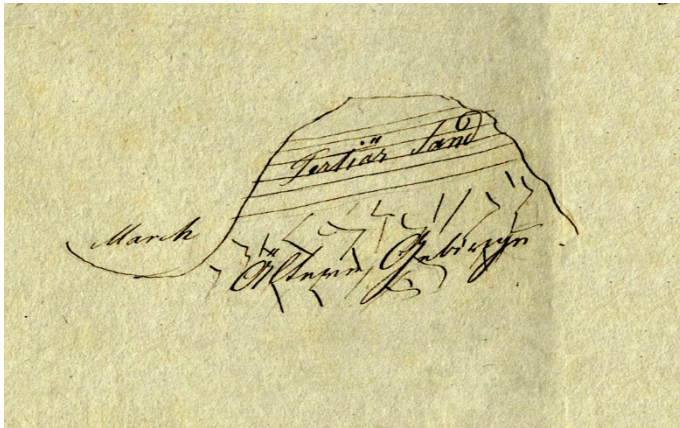 Tertiär Sand
March
Älteres Gebirge